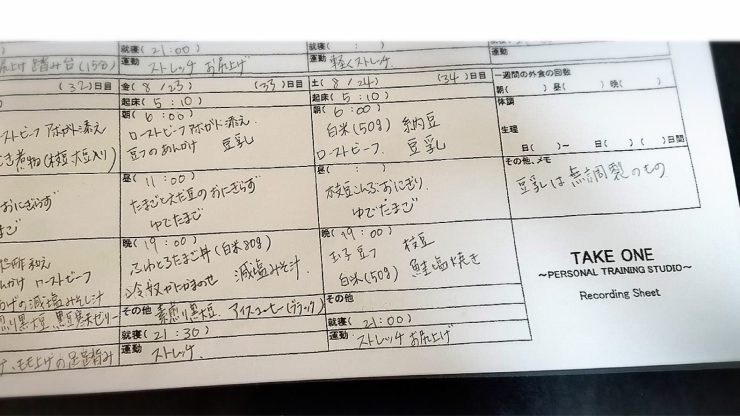 就寝( 21:00 )
就寝( : )
就寝( : )
尻上げ 踏み台(15分)
運動 ストレッチ お尻上げ
運動 軽くストレッチ
運動
(32)日目
金( 8 / 23 ) (33)日目
土( 8 / 24 ) (34)日目
一週間の外食の回数
朝( ) 昼( ) 晩( )
起床( 5:10 )
起床( 5:10 )
体調
朝( 6:00 )
朝( 6:00 )
ローストビーフ アボカド添え
ローストビーフ アボカド添え
白米(50g) 納豆
煮物(枝豆 大豆入り)
豆乳
ローストビーフ 豆乳
生理
日( )~ 日( ) ( )日間
その他、メモ
豆乳は無調製のもの
昼( 11:00 )
昼( : )
おにぎらず
たまごとえだ豆のおにぎらず
枝豆こんぶおにぎり
ゆでたまご
ゆでたまご
晩( 19:00 )
晩( 19:00 )
ふわとろたまご丼(白米80g)
玉子豆腐 枝豆
ローストビーフ
冷奴 減塩みそ汁
白米(50g) 鮭塩焼き
の減塩みそ汁
その他 素煎り黒大豆 アイスコーヒー(ブラック)
その他
就寝( 21:30 )
就寝( 21:00 )
もも上げの足踏み
運動 ストレッチ
運動 ストレッチ お尻上げ
TAKE ONE
~PERSONAL TRAINING STUDIO~
Recording Sheet